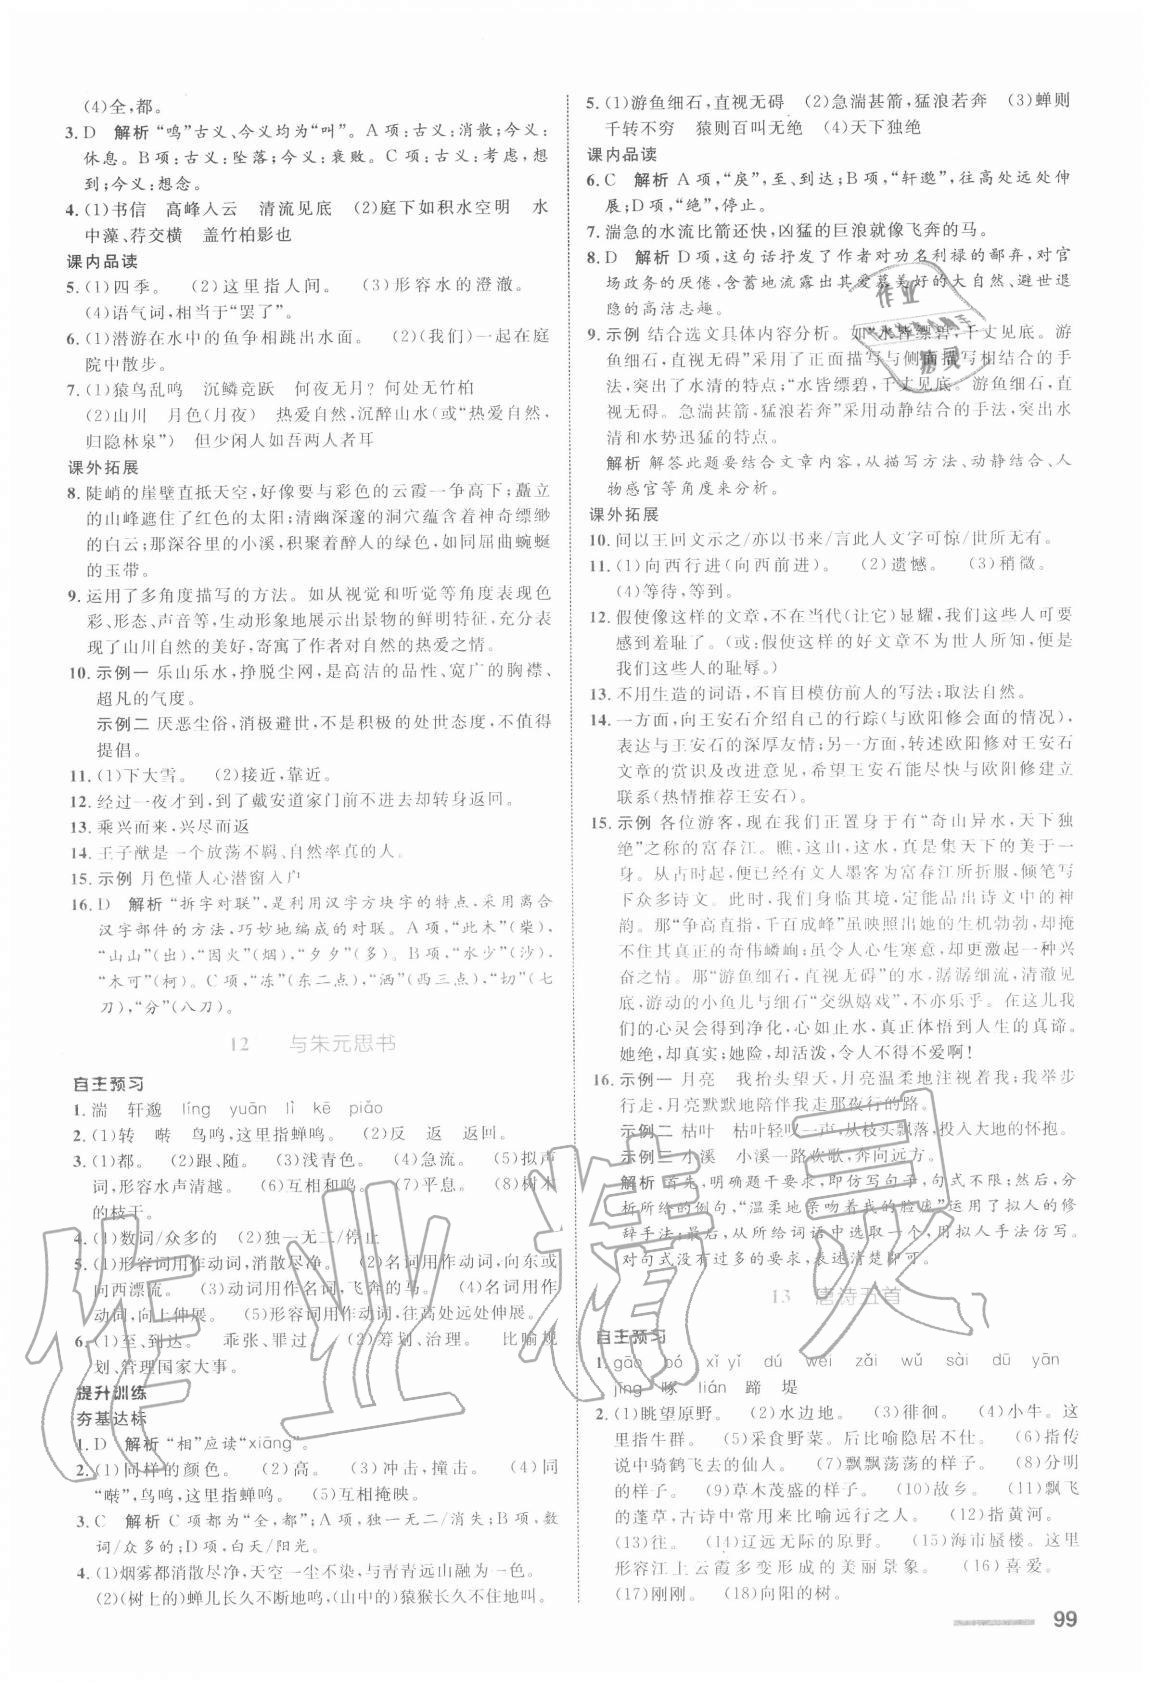 (4)全,都。
3. D 解析 “鸣”古义、今义均为“叫”。A 项:古义:消散;今义:
休息。B 项:古义:坠落;今义:衰败。C 项:古义:考虑,想
到;今义:想念。
4. (1)书信 高峰入云 清流见底 (2)庭下如积水空明 水
中藻、荇交横 盖竹柏影也
课内品读
5. (1)四季。 (2)这里指人间。 (3)形容水的澄澈。
(4)语气词,相当于“罢了”。
6. (1)潜游在水中的鱼争相跳出水面。 (2)(我们)一起在庭
院中散步。
7. (1)猿鸟乱鸣 沉鳞竞跃 何夜无月?何处无竹柏
(2)山川 月色(月夜) 热爱自然,沉醉山水(或“热爱自然,
归隐林泉”) 但少闲人如吾两人者耳
课外拓展
8. 陡峭的崖壁直抵天空,好像要与彩色的云霞一争高下;矗立
的山峰遮住了红色的太阳;清幽深邃的洞穴蕴含着神奇缥缈
的白云;那深谷里的小溪,积聚着醉人的绿色,如同屈曲蜿蜒
的玉带。
9. 运用了多角度描写的方法。如从视觉和听觉等角度表现色
彩、形态、声音等,生动形象地展示出景物的鲜明特征,充分
表现了山川自然的美好,寄寓了作者对自然的热爱之情。
10. 示例一 乐山乐水,挣脱尘网,是高洁的品性、宽广的胸襟、
超凡的气度。
示例二 厌恶尘俗,消极避世,不是积极的处世态度,不值得
提倡。
11. (1)下大雪。 (2)接近,靠近。
12. 经过一夜才到,到了戴安道家门前不进去却转身返回。
13. 乘兴而来,兴尽而返
14. 王子猷是一个放荡不羁、自然率真的人。
15. 示例 月色懂人心潜窗入户
16. D 解析 “拆字对联”,是利用汉字方块字的特点,采用离合
汉字部件的方法,巧妙地编成的对联。A项,“此木”(柴),
“山山”(出),“因火”(烟),“夕夕”(多)。B项,“水少”(沙),
“木可”(柯)。C 项,“冻”(东二点),“洒”(西三点),“切”(七
刀),“分”(八刀)。
12 与朱元思书
自主预习
1. 湍 轩邈 líng yuān lì kē piǎo
2. (1)转 啭 鸟鸣,这里指蝉鸣。 (2)反 返 返回。
3. (1)都。 (2)跟、随。 (3)浅青色。 (4)急流。 (5)拟声
词,形容水声清越。 (6)互相和鸣。 (7)平息。 (8)树木
的枝干。
4. (1)数词/众多的 (2)独一无二/停止
5. (1)形容词用作动词,消散尽净。 (2)名词用作动词,向东或
向西漂流。 (3)动词用作名词,飞奔的马。 (4)名词用作
动词,向上伸展。 (5)形容词用作动词,往高处远处伸展。
6. (1)至、到达。 乖张、罪过。 (2)筹划、治理。 比喻规
划、管理国家大事。
提升训练
夯基达标
1. D 解析 “相”应读“xiāng”。
2. (1)同样的颜色。 (2)高。 (3)冲击,撞击。 (4)同
“啭”,鸟鸣,这里指蝉鸣。 (5)互相掩映。
3. C 解析 C 项都为“全,都”;A 项,独一无二/消失;B 项,数
词/众多的;D项,白天/阳光。
4. (1)烟雾都消散尽净,天空一尘不染,与青青远山融为一体。
(2)(树上的)蝉儿长久不断地鸣,(山中的)猿猴长久不住地叫。
5. (1)游鱼细石,直视无碍 (2)急湍甚箭,猛浪若奔 (3)蝉则
千转不穷 猿则百叫无绝 (4)天下独绝
课内品读
6. C 解析 A 项,“戾”,至、到达;B项,“轩邈”,往高处远处伸
展;D 项,“绝”,停止。
7. 湍急的水流比箭还快,凶猛的巨浪就像飞奔的马。
8. D 解析 D 项,这句话抒发了作者对功名利禄的鄙弃,对官
场政务的厌倦,含蓄地流露出其爱慕美好的大自然、避世退
隐的高洁志趣。
9. 示例 结合选文具体内容分析。如“水皆缥碧,千丈见底。游
鱼细石,直视无碍”采用了正面描写与侧面描写相结合的手
法,突出了水清的特点;“水皆缥碧,千丈见底。游鱼细石,直
视无碍。急湍甚箭,猛浪若奔”采用动静结合的手法,突出水
清和水势迅猛的特点。
解析 解答此题要结合文章内容,从描写方法、动静结合、人
物感官等角度来分析。
课外拓展
10. 间以王回文示之/亦以书来/言此人文字可惊/世所无有。
11. (1)向西行进(向西前进)。 (2)遗憾。 (3)稍微。
(4)等待,等到。
12. 假使像这样的文章,不在当代(让它)显耀,我们这些人可要
感到羞耻了。(或:假使这样的好文章不为世人所知,便是
我们这些人的耻辱。)
13. 不用生造的词语,不盲目模仿前人的写法;取法自然。
14. 一方面,向王安石介绍自己的行踪(与欧阳修会面的情况),
表达与王安石的深厚友情;另一方面,转述欧阳修对王安石
文章的赏识及改进意见,希望王安石能尽快与欧阳修建立
联系(热情推荐王安石)。
15. 示例 各位游客,现在我们正置身于有“奇山异水,天下独
绝”之称的富春江。瞧,这山,这水,真是集天下的美于一
身。从古时起,便已经有文人墨客为富春江所折服,倾笔写
下众多诗文。此时,我们身临其境,定能品出诗文中的神
韵。那“争高直指,千百成峰”虽映照出她的生机勃勃,却掩
不住其真正的奇伟嶙峋;虽令人心生寒意,却激起一种兴
奋之情。那“游鱼细石,直视无碍”的水,潺潺细流,清澈见
底,游动的小鱼儿与细石“交纵嬉戏”,不亦乐乎。在这儿我
们的心灵会得到净化,心如止水,真正体悟到人生的真谛。
她绝,却真实;她险,却活泼,令人不得不爱啊!
16. 示例一 月亮 我抬头望天,月亮温柔地注视着我;我举步
行走,月亮默默地陪伴我在那夜行的路。
示例二 枯叶 枯叶轻叹一声,从枝头飘落,投入大地的怀抱。
示例三 小溪 小溪一路欢歌,奔向远方。
解析 首先,明确题干要求,即仿写句子,句式不限;然后,分
析所给的例句,“温柔地亲吻着我的脸庞”运用了拟人的修
辞手法;最后,从所给词语中选取一个,用拟人手法仿写。
对句式没有过多的要求,表述清楚即可。
13 唐诗五首
自主预习
1. gāo bó xǐ yǐ dú wéi zǎi wǔ sài dū yān
jīng 啄 lián 蹄 堤
2. (1)眺望原野。 (2)水边地。 (3)徘徊。 (4)小牛。这
里指牛群。 (5)采食野菜。后比喻隐居不仕。 (6)传
说中骑鹤飞去的仙人。 (7)飘飘荡荡的样子。 (8)分明
的样子。 (9)草木茂盛的样子。 (10)故乡。 (11)飘飞
的蓬草,古诗中常用来比喻远行之人。 (12)指黄河。
(13)往。 (14)辽远无际的原野。 (15)海市蜃楼。这里
形容江上云霞多变形成的美丽景象。 (16)喜爱。
(17)刚刚。 (18)向阳的树。
99
作业精灵
作业
精灵